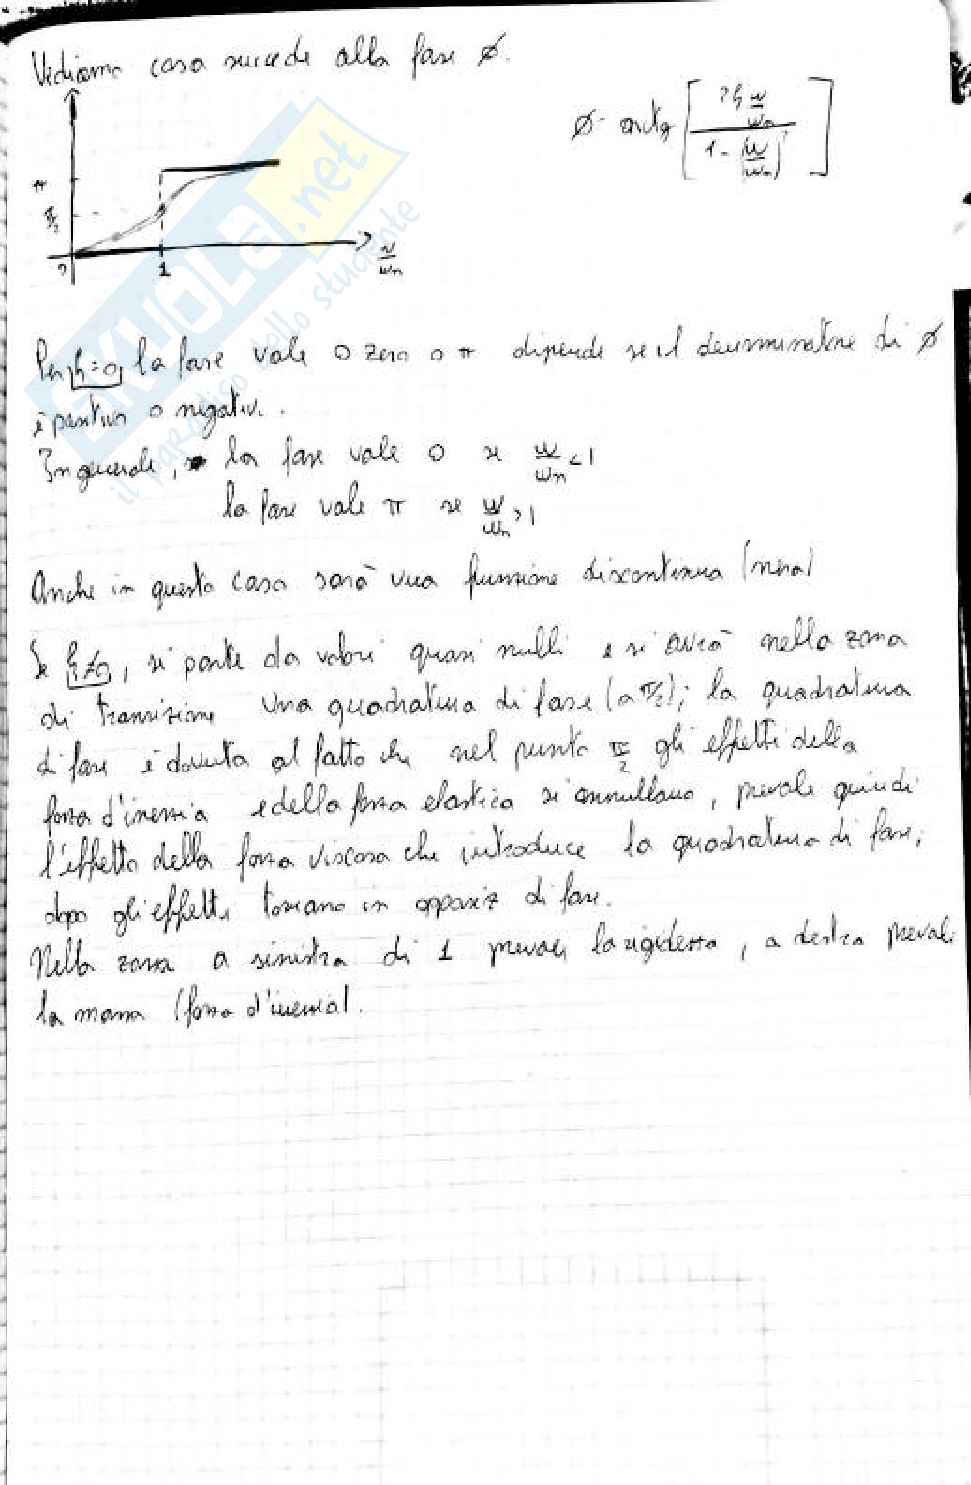 Vediamo cosa succede alla fase ø.
ø = arctg [ 2ξ w/wn / 1 - (w/wn)² ]
π
π/2
0
1
w/wn
Per ξ=0, la fase vale o zero o π dipende se il denominatore di ø
è positivo o negativo.
In generale, la fase vale 0 se w/wn <1
la fase vale π se w/wn >1
Anche in questo caso sarà una funzione discontinua (nera)
Se ξ≠0, si parte da valori quasi nulli e si avrà nella zona
di transizione una quadratura di fase (a π/2); la quadratura
di fase è dovuta al fatto che nel punto π/2 gli effetti della
forza d'inerzia e della forza elastica si annullano, prevale quindi
l'effetto della forza viscosa che introduce la quadratura di fase,
dopo gli effetti tornano in opposiz di fase.
Nella zona a sinistra di 1 preval la rigidezza, a destra prevale
la massa (forza d'inerzia).
SKUOLA.net
il paradiso dello studente